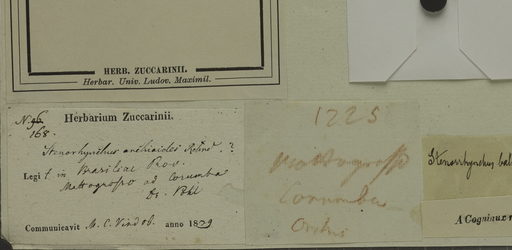 HERB. ZUCCARINII.
Herbar. Univ. Ludov. Maximil.
N. 96.
168.
Herbarium Zuccarinii.
Stenorhynchus orchioides ?
Legi t. in Brasiliae Prov.
Mattogrosso ad Corumba
Dr. Pohl
Communicavit M. C. Vindob. anno 1839
1225
Mattogrosso
Corumba
Stenorrhynchus
A Cogniaux